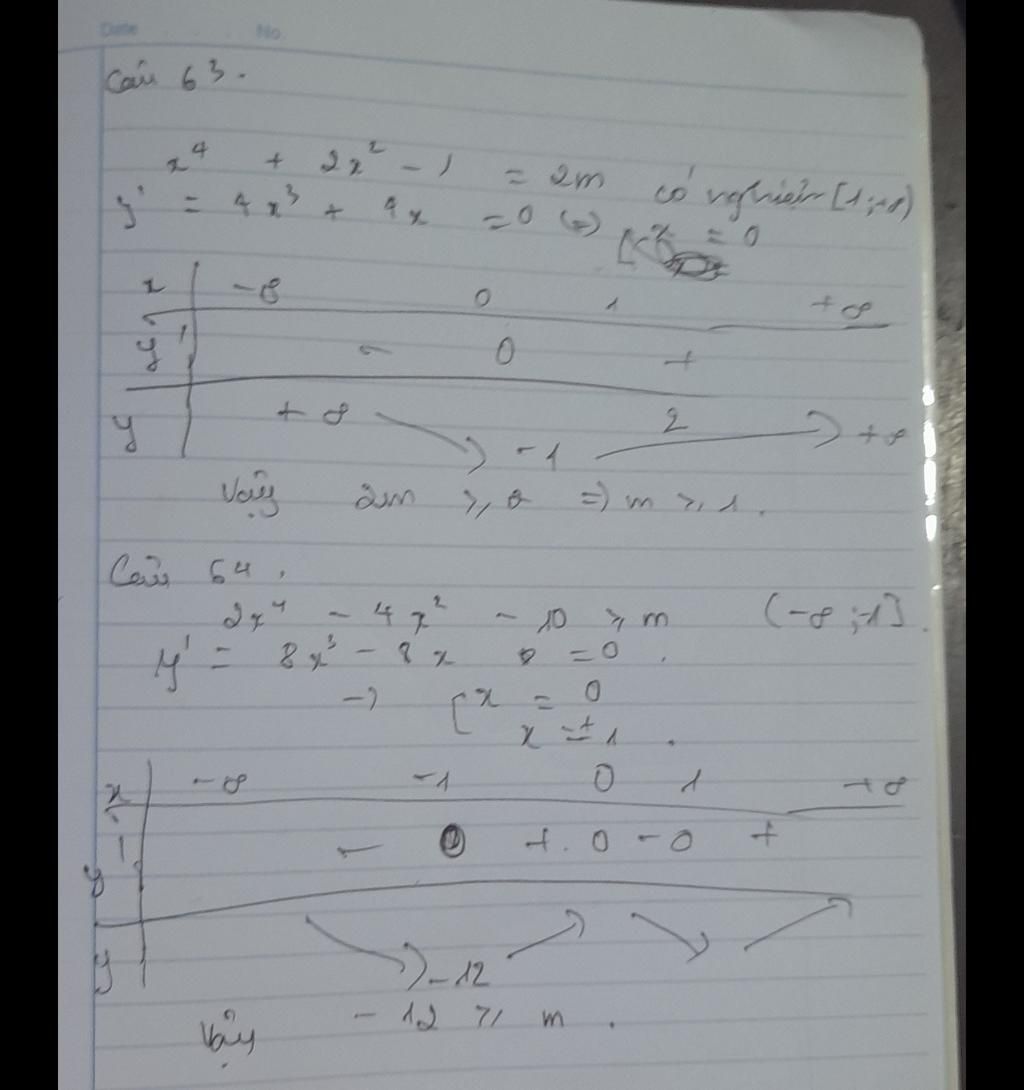 Date No.
Câu 63.
x⁴ + 2x² - 1 = 2m có nghiệm [1;+∞)
y' = 4x³ + 4x = 0 (=) [x = 0
x -∞ 0 1 +∞
y' - 0 +
y +∞ -1 2 +∞
Vậy 2m ≥ 2 => m ≥ 1.
Câu 64.
2x⁴ - 4x² - 10 ≥ m (-∞;-1].
y' = 8x³ - 8x = 0.
-> [x = 0
x = ±1.
x -∞ -1 0 1 +∞
y' - 0 + 0 - 0 +
y -12
Vậy -12 ≥ m.